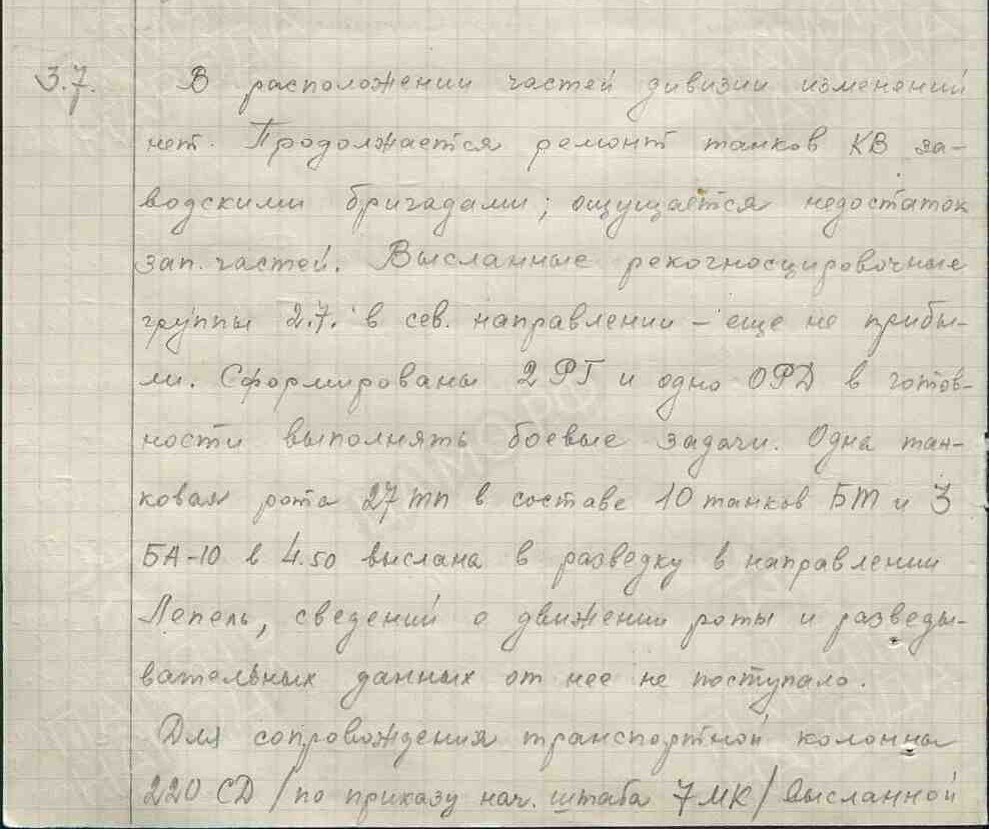 3.7. В расположении частей дивизии изменений
нет. Продолжается ремонт танков КВ за-
водскими бригадами; ощущается недостаток
зап. частей. Высланные рекогносцировочные
группы 2.7. в сев. направлении – еще не прибы-
ли. Сформированы 2 РГ и одно ОРД в готов-
ности выполнять боевые задачи. Одна тан-
ковая рота 27 тп в составе 10 танков БТ и 3
БА-10 в 4.50 выслана в разведку в направлении
Лепель, сведений о движении роты и разведы-
вательных данных от нее не поступало.
Для сопровождения транспортной колонны
220 СД /по приказу нач. штаба 7 МК/ высланной